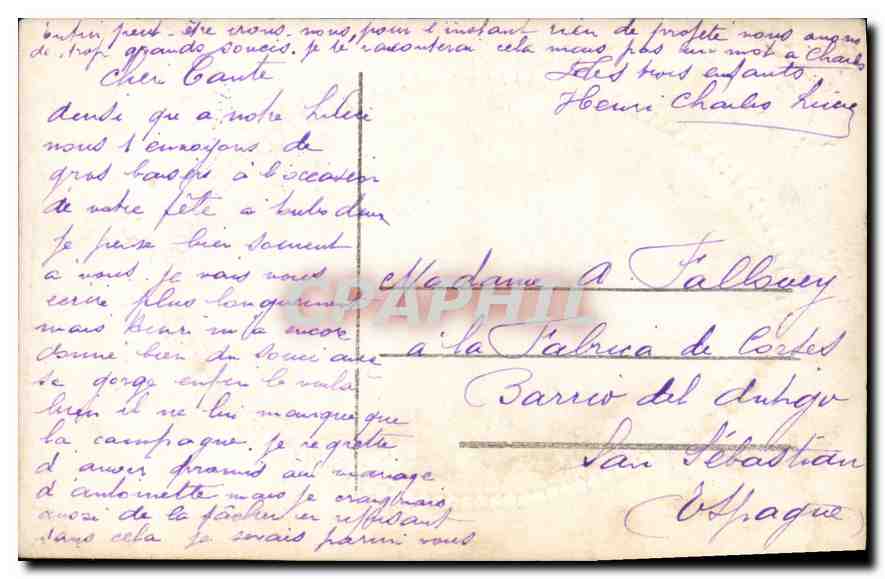 enfin peut-être irons-nous, pour l'instant rien de projeté nous avons
de trop grands soucis. je te raconterai cela mais pas un mot à Charles
Cher Tante
Les trois enfants
Henri Charles Lucie
ainsi que a notre
nous t'envoyons de
gros baisers à l'occasion
de votre fête à toutes deux
je pense bien souvent
a vous. je vais vous
écrire plus longuement
mais Henri m'a encore
donné bien du souci avec
sa gorge enfin le voilà
bien il ne lui manque que
la campagne. je regrette
d'avoir promis au mariage
d'antoinette mais je craignais
aussi de la fâcher en refusant
sans cela je serais parmi vous
Madame A. Fallouey
à la Fabrica de Cortes
Barrio del Antigo
San Sébastian
(Espagne)
CPAPHIL